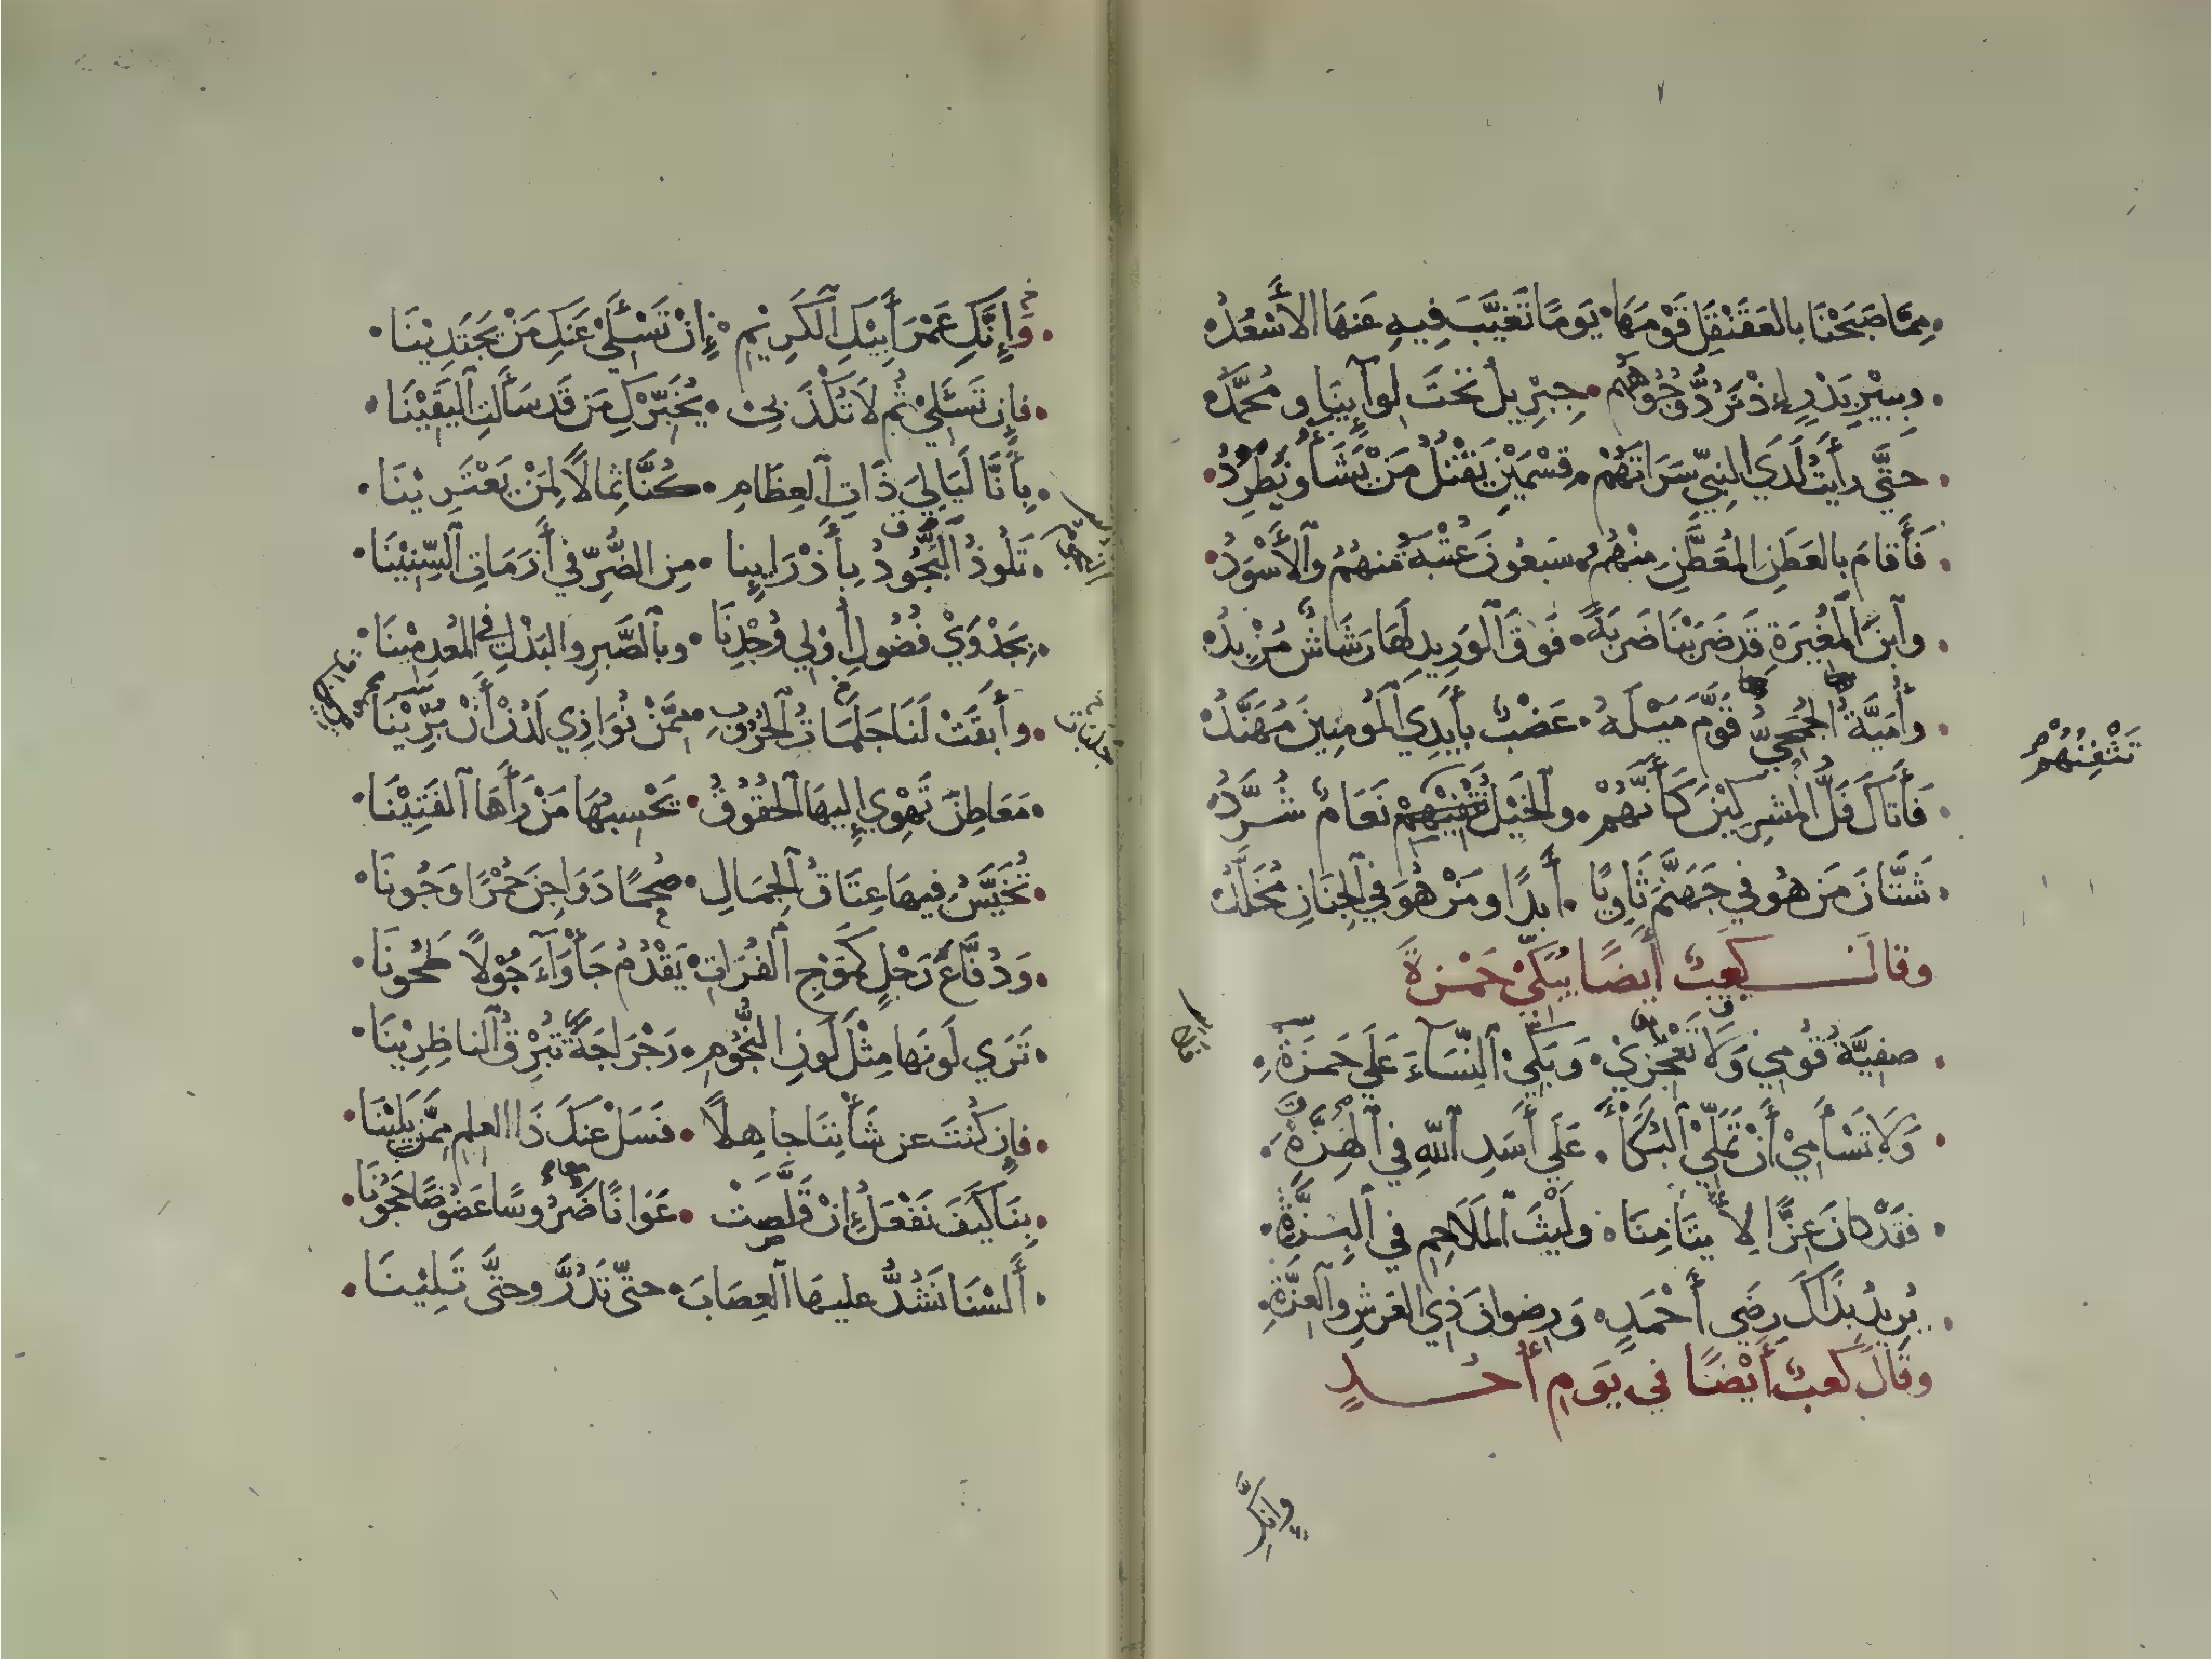 مِمَّا صَبَحْنَا بالعَقَنْقَلِ قَوْمَهَا • يَومًا تَغَيَّبَ فِيهِ عَنهَا الأَسْعُدُ
وبِبِيْرِ بَدْرٍ إِذْ تَرُدُّ وُجُوهَهُم • جِبْرِيلُ تَحْتَ لِوَآيِنَا ومُحَمَّدُ
حَتَّى رأَيتُ لَدَي النبيِّ سَرَاتَهُمْ • قِسْمَيْنِ نَقْتُلُ مَنْ نَشَأُ ونَطْرُدُ
فَأَقامَ بالعَطَنِ المُعَطَّنِ مِنْهُمُ • سَبعُونَ عُتْبَةُ مِنهُمُ والأَسْوَدُ
وآبنَ المُغِيرَةِ قَد ضَرَبْنَا ضَربَةً • فَوقَ آلوَرِيدِ لَهَا رَشَاشٌ مُزْبِدُ
وأُمَيَّةُ الجُمَحِيُّ قَوَّمَ مَيْلَهُ • عَضْبٌ بأَيدِي آلمُومِنِينَ مُهَنَّدُ
فَأَتاكَ فَلُّ المُشرِكِيْنَ كَأَنَّهُمْ • والخَيْلُ نَعَامٌ شُرَّدُ
تَثْفِنُهُمْ
شَتَّانَ مَن هُو في جَهَنَّمَ ثَاوِيًا • أَبدًا ومَنْ هُوَ في آلجِنَانِ مُخَلَّدُ
وقالَ كعبٌ أيضًا يُبَكِّيْ حَمْزةَ
صفيَّةُ قُومِي وَلَا تَعْجَزِيْ • وَبَكِّي آلنِّسَاءَ عَلَي حَمزَةِ •
وَلَا تَسْأَمِيْ أَنْ تُمَلِّيْ آلبُكَاْ • عَلَي أَسَدِ آللهِ في آلهِزَّةِ •
فقَدْ كانَ عِزًّا لِأَيتَامِنَا • ولَيْثَ آلمَلَاحِمِ في آلبِزَّةِ •
يُرِيدُ بِذَاكَ رِضَي أَحْمَدٍ • وَرِضوانَ ذِي العَرشِ وآلعِزَّةِ •
وقَالَ كَعبٌ أَيْضًا في يَومِ أُحُدٍ
وإِنَّكِ
وإِنَّكِ عَمْرَ أَبِيْكِ آلكَرِيْمِ • إِنْ تَسْئَلِيْ عَنكِ مَنْ يَجتَدِيْنَا •
فإِن تَسئَلِيْ ثُم لَا تُكْذَبِيْ • يُخَبِّرْكِ مَن قَد سَأَلتِ آليَقِيْنَا •
بِأَنَّا لَيَالِيَ ذَاتِ آلعِظَامِ • كُنَّا ثِمالًا لِمَنْ يَعْتَرِيْنَا •
تَلُوذُ البُجُودُ بِأَذْرَايِنا • مِن الضُّرِّ في أَزَمَاتِ آلسِّنِيْنَا •
بِجَدْوَيْ فُضُولِ أُوْلي وُجْدِنَا • وبآلصَّبرِ والبَذْلِ في المُعدِمْينَا •
وأَبقَتْ لَنَا جَلَمَاتُ آلحُرُوبِ • مِمَّنْ نُوَاذِي لَدُنْ أَنْ بُرِيْنَا
جلبات
مَعَاطِنَ تَهْوِي إِليهَا آلحُقُوقُ • يَحْسِبُهَا مَنْ رَأَهَا آلفَتِيْنَا •
تُخَيَّسُ فِيهَا عِتَاقُ آلجِمَالِ • صُحْمًا دَوَاجِنَ حُمْرًا وَجُونَا •
وَدُفَّاعُ رَجْلٍ كَمَوْجِ آلفُرَاتِ • يَقْدُمُ جَأْوَآءَ جُوْلًا طَحُونَا •
تَرَي لَونَها مِثْلَ لَونِ النُّجُومِ • رَجْرَاجَةً تُبْرِقُ آلناظِرِيْنَا •
فإِن كُنْتَ عن شَأْنِنَا جاهِلًا • فَسَلْ عَنكَ ذَا العِلمِ مِمَّن يَلِيْنَا •
بِنَا كَيفَ نَفْعَلُ إِنْ قَلَّصَتْ • عَوَانًا ضَرُوسًا عَضُوضًا حَجُونَا •
أَلَسْنَا نَشُدُّ عليهَا آلعِصَابَ • حتَّى تَدُرَّ وحتَّى تَلِيْنَا •